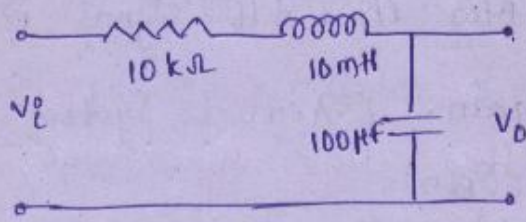 10 kΩ
10mH
Vi
100μF
V0